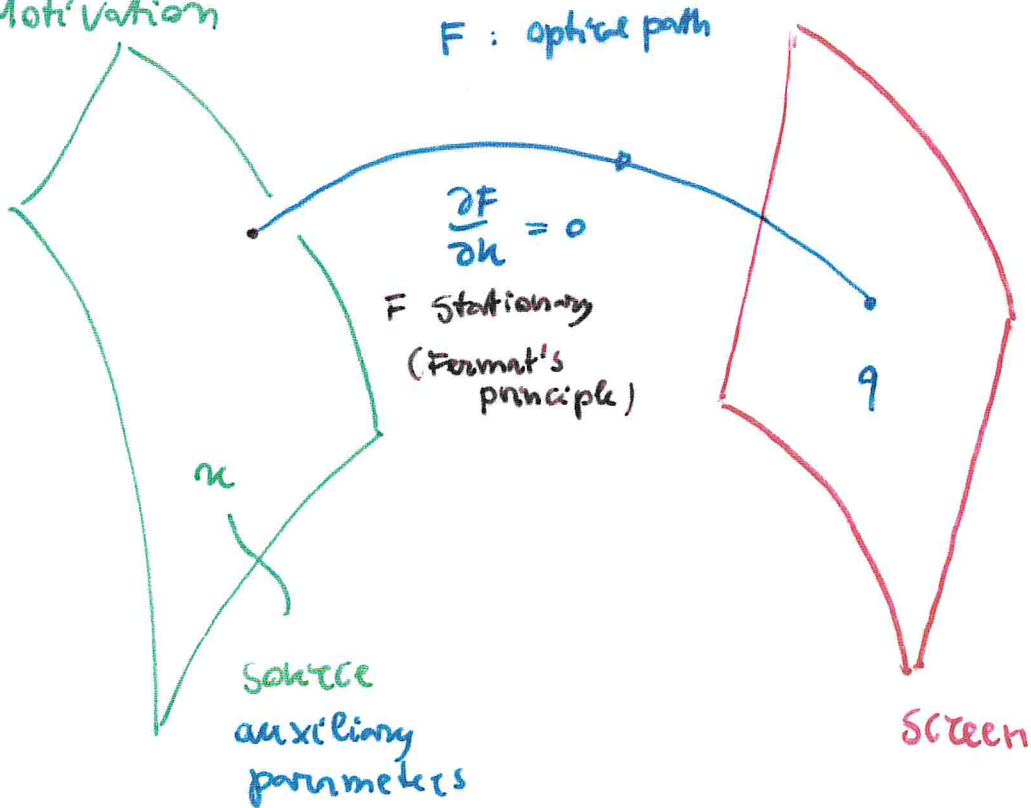 Motivation
F : optical path
∂F/∂x = 0
F stationary
(Fermat's
principle)
q
x
source
auxiliary
parameters
screen